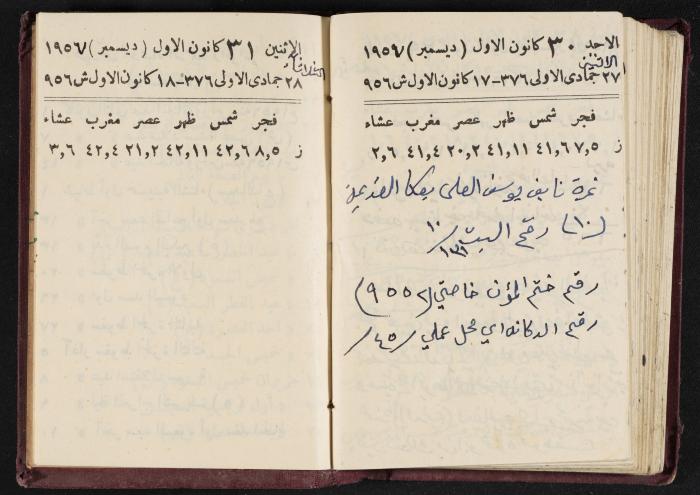 الاحد ٣٠ كانون الاول ( ديسمبر ) ١٩٥٦
الاثنين
٢٧ جمادى الاولى ٣٧٦-١٧ كانون الاول ش ٩٥٦
فجر شمس ظهر عصر مغرب عشاء
ز ٧,٥ ٤١,٦ ٤١,١١ ٢٠,٢ ٤١,٤ ٢,٦
نمرة يوسف العلي بعكا القديمة
(١٠) رقم البيت ١٠/
١٣١
رقم ختم المؤن خاصتي (٩٥٥٢)
رقم الدكانه اي محل عملي /٤٥/
الاثنين ٣١ كانون الاول ( ديسمبر ) ١٩٥٦
الثلاثاء
٢٨ جمادى الاولى ٣٧٦-١٨ كانون الاول ش ٩٥٦
فجر شمس ظهر عصر مغرب عشاء
ز ٨,٥ ٤٢,٦ ٤٢,١١ ٢١,٢ ٤٢,٤ ٣,٦